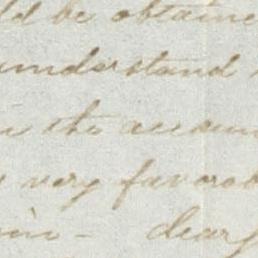 ld be obtaine
understand
the accoun
very favorab
dear